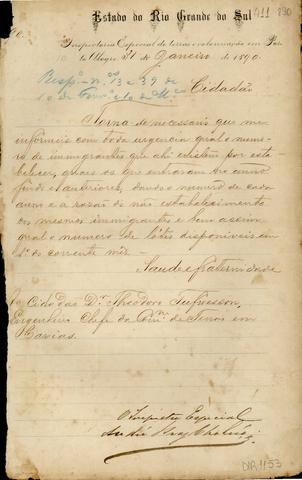 411 890
Estado do Rio Grande do Sul
Inspectoria Especial de terras e colonisação em Por
to Alegre 31 de Janeiro de 1890.
Resp. nos 13 e 39 de
10 de Fevro e 10 de Mço
Cidadão
Torna-se necessario que me
informeis com toda urgencia qual o nume-
ro de immigrantes que ahi existem por esta
belecer, quaes os que entraram no anno
findo e anteriores, dando o numero de cada
anno e a rasão do não estabelecimento
dos mesmos immigrantes e bem assim
qual o numero de lótes disponiveis em
1º do corrente mêz.
Saude e fraternidade
Ao Cidadão Dr. Theodoro
Engenheiro Chefe da Comm. de Terras em
Caxias.
O Inspector Especial
DIR 1153